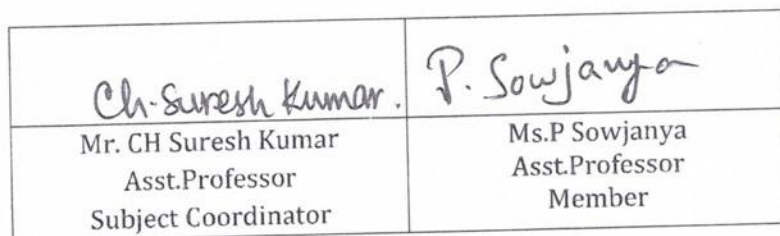 Ch. Suresh Kumar.
Mr. CH Suresh Kumar
Asst.Professor
Subject Coordinator
P. Sowjanya
Ms.P Sowjanya
Asst.Professor
Member